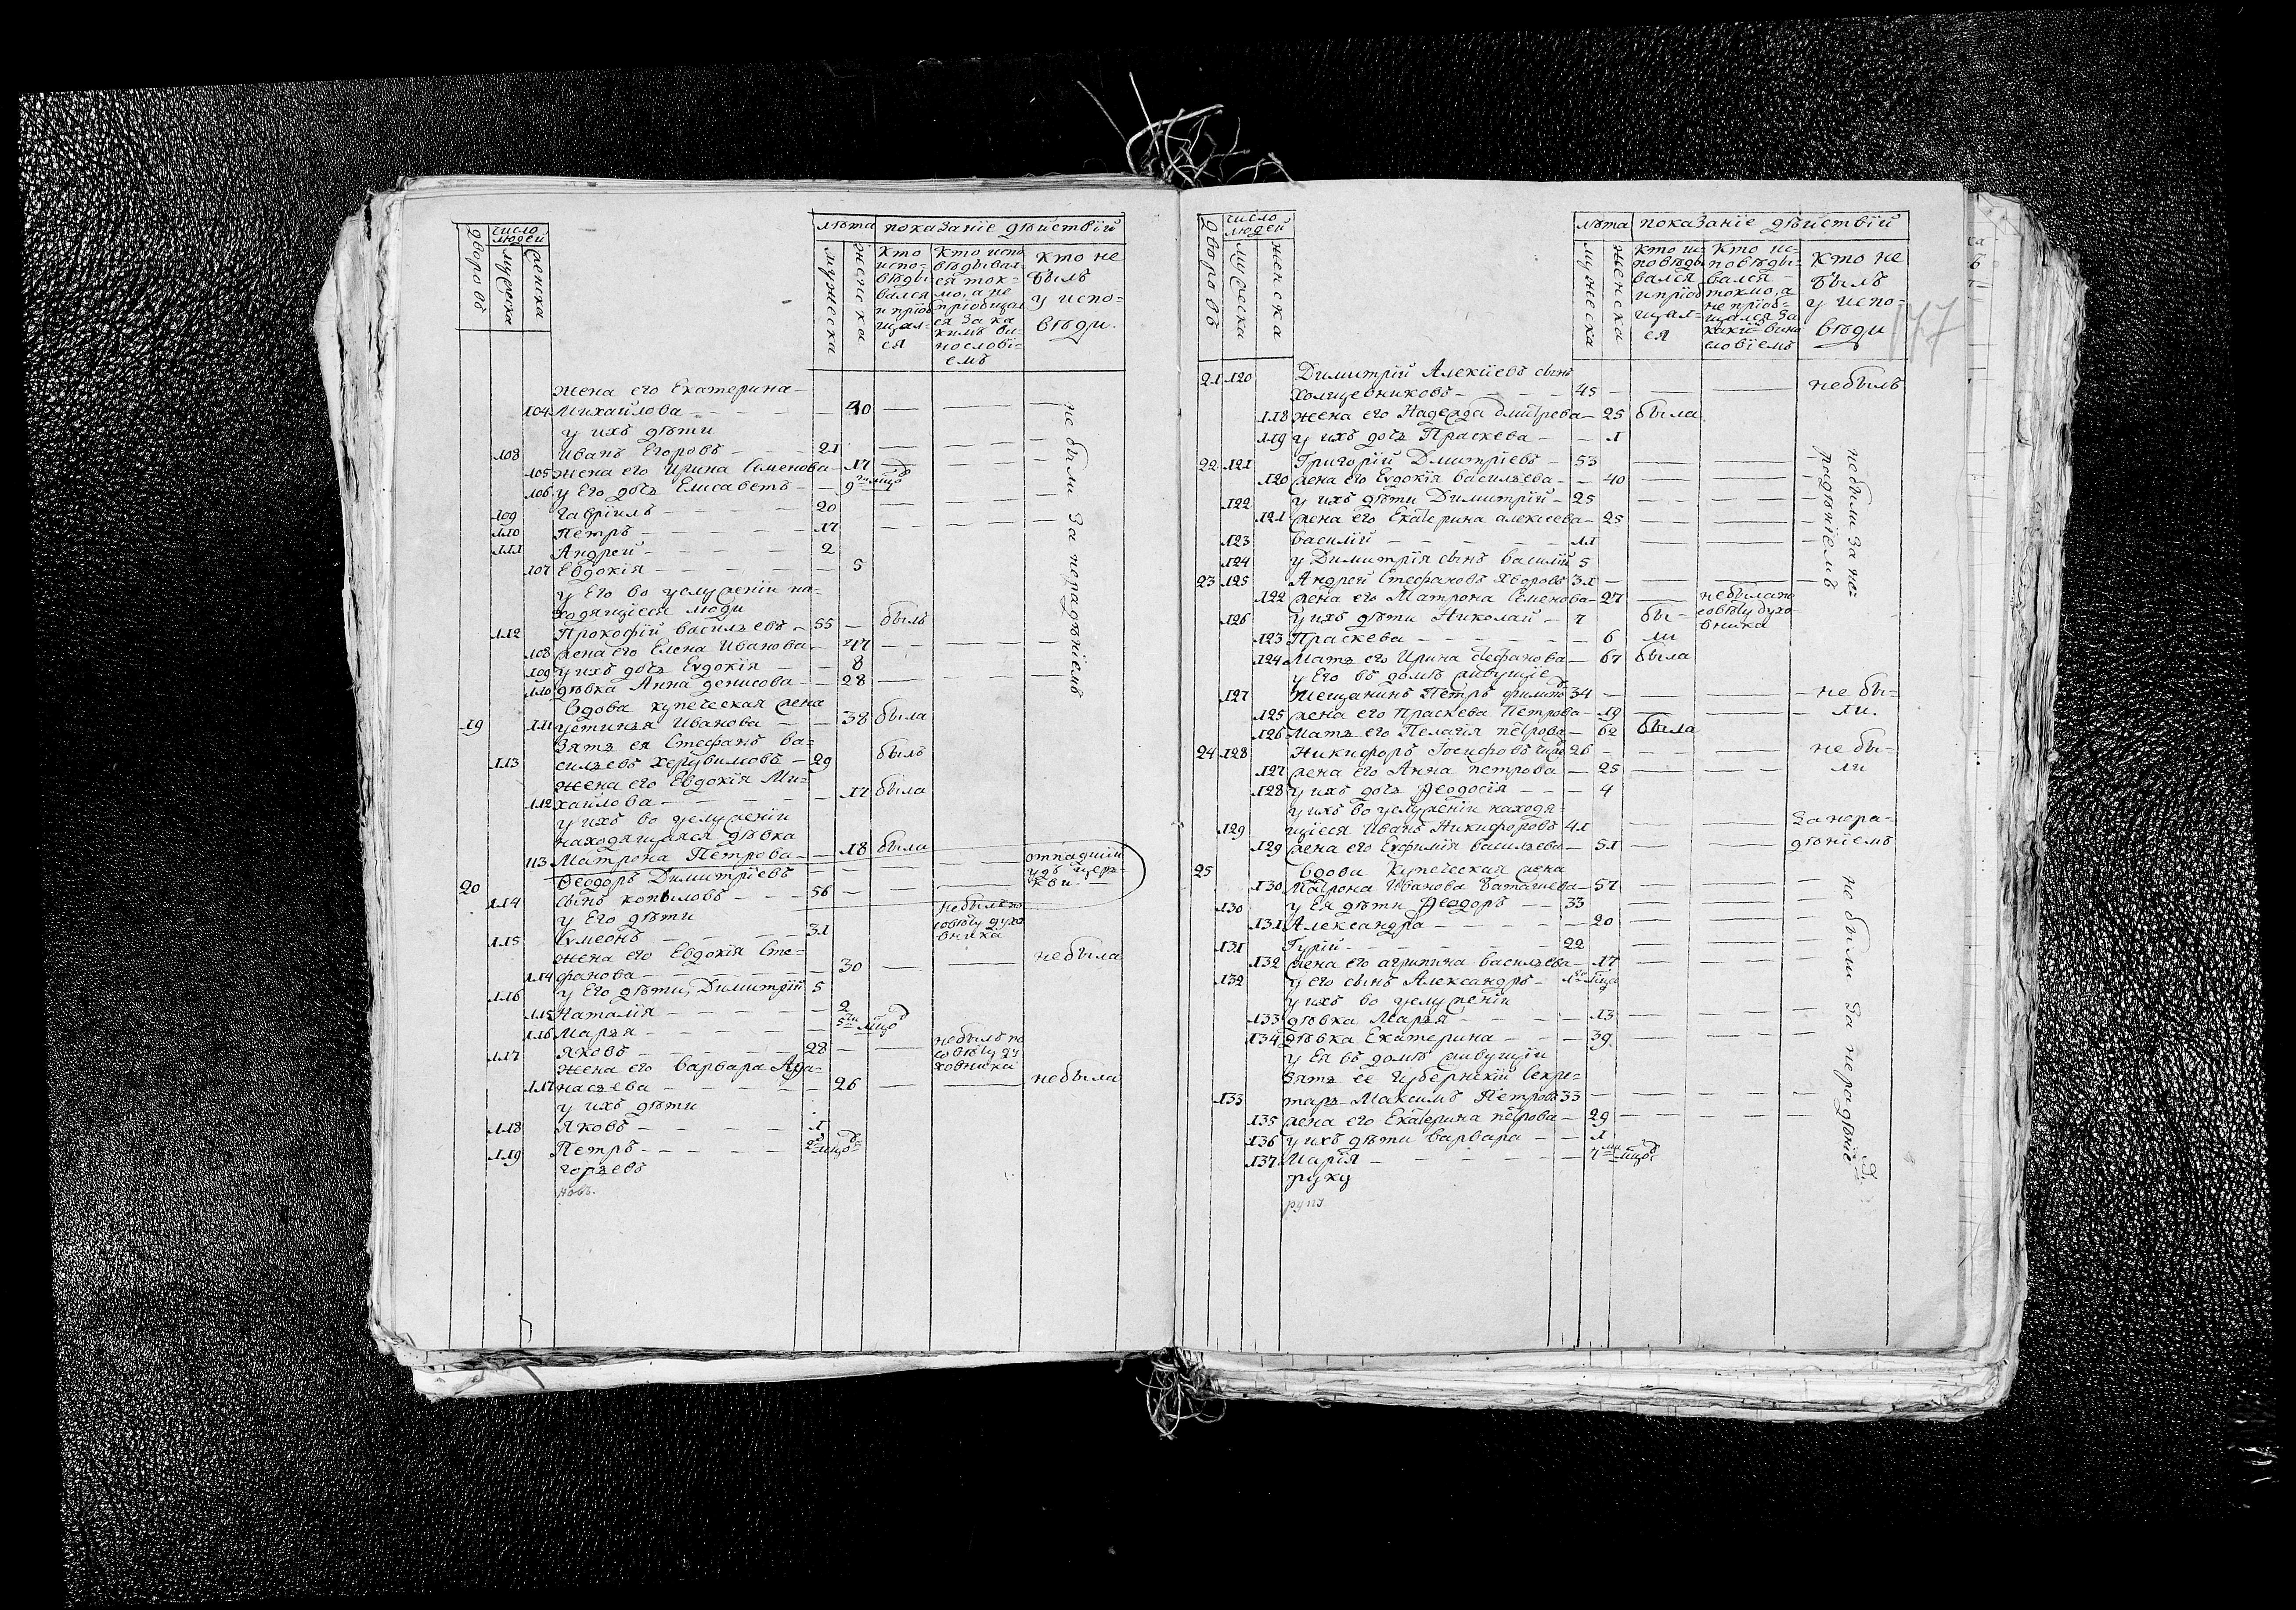 дворовъ
число
людей
мужеска
женска
лѣта
показаніе дѣйствій
мужеска
женска
Кто
испо-
вѣды
вался
и пріоб
щал-
ся
Кто испо
вѣдывал
ся ток-
мо, а не
пріобщал
ся за ка
кимъ ви-
нословї-
емъ
Кто не
былъ
у испо-
вѣди.
жена его Екатерина
104 Михайлова 40
у ихъ дѣти
108 Иванъ Егоровъ 21
105 жена его Ирина Семенова 17
106 у Его дочь Елисаветъ 9
109 Гавріилъ 20
110 Петръ 17
111 Андрей 2
107 Евдокія 5
у Его во услуженіи на-
ходящіеся люди
112 Прокофій Васильевъ 55 былъ
108 жена его Елена Иванова 47
109 у ихъ дочь Еѵдокія 8
110 дѣвка Анна денисова 28
не были за нерадѣніемъ
Вдова купеческая жена
19 111 устинья Иванова 38 была
Зять ея Стефанъ Ва-
113 сильевъ Херувимовъ 29 былъ
жена его Евдокія Ми-
112 хайлова 17 была
у ихъ во услуженіи
находящаяся дѣвка
113 Матрона Петрова 18 была
Ѳеодоръ Димитріевъ
20 114 сынъ копыловъ 56
отпадшій
изъ цер-
кви.
у Его дѣти
115 Сѵмеонъ 31
не былъ по
совѣту духо
вника
жена его Евдокія Сте-
114 фанова 30 не была
116 у Его дѣти, Димитрій 5
115 Наталія 2
116 Марья 5
117 Яковъ 28
не былъ по
совѣту ду
ховника
жена его Варвара Афа-
117 насьева 26 не была
у ихъ дѣти
118 Яковъ 1
119 Петръ 2
горьевъ
новъ.
дворовъ
число
людей
мужеска
женска
лѣта
показаніе дѣйствій
мужеска
женска
Кто ис-
повѣды
вался
и пріоб
щал-
ся
Кто ис-
повѣды-
вался
токмо, а
не пріоб-
щался за
какі- вино
словїемъ
Кто не
былъ
у испо-
вѣди
21 120 Димитрій Алексіевъ сынъ
45 не былъ
118 жена его Надежда дмитрева 25 была
119 у ихъ дочь Праскева 1
22 121 Григорій Дмитріевъ 53
120 жена его Еѵдокія Васильева 40
122 у ихъ дѣти Димитрій 25
121 жена его Екатерина алексеева 25
123 Василій 11
124 у Димитрія сынъ Василій 5
23 125 Андрей Стефановъ Яворовъ 31
не были за не-
радѣніемъ
122 жена его Матрона Семенова 27
не была по
совѣту духо
вника
126 у ихъ дѣти Николай 7 бы-
123 Праскева 6 ли
124 Мать его Ирина Стефанова 67 была
у Его въ домѣ живущіе
127 Мещанинъ Петръ 34 не бы-
125 жена его Праскева Петрова 19 ли.
126 Мать его Пелагія петрова 62 была
24 128 Никифоръ Іосифовъ 26 не бы-
127 жена его Анна петрова 25 ли
128 у ихъ дочь Ѳеодосія 4
у ихъ во услуженіи находя-
129 щіеся Иванъ Никифоровъ 41 за нера-
129 жена его Евфимія Васильева 51 дѣніемъ
25 Вдова Купеческая жена
130 Матрона Иванова Баташева 57
130 у Ея дѣти Ѳеодоръ 33
131 Александра 20
131 Гурій 22
132 жена его агрипина васильева 17
132 у его сынъ Александръ 1
у ихъ во услуженіи
133 дѣвка Марья 13
134 дѣвка Екатерина 39
у Ея въ домѣ живущіи
зять ее Губернскій Секре-
133 тарь Максимъ Петровъ 33
135 жена его Екатерина петрова 29
136 у ихъ дѣти Варвара 1
137 Марія 7
не были за нерадѣніе
руку
147